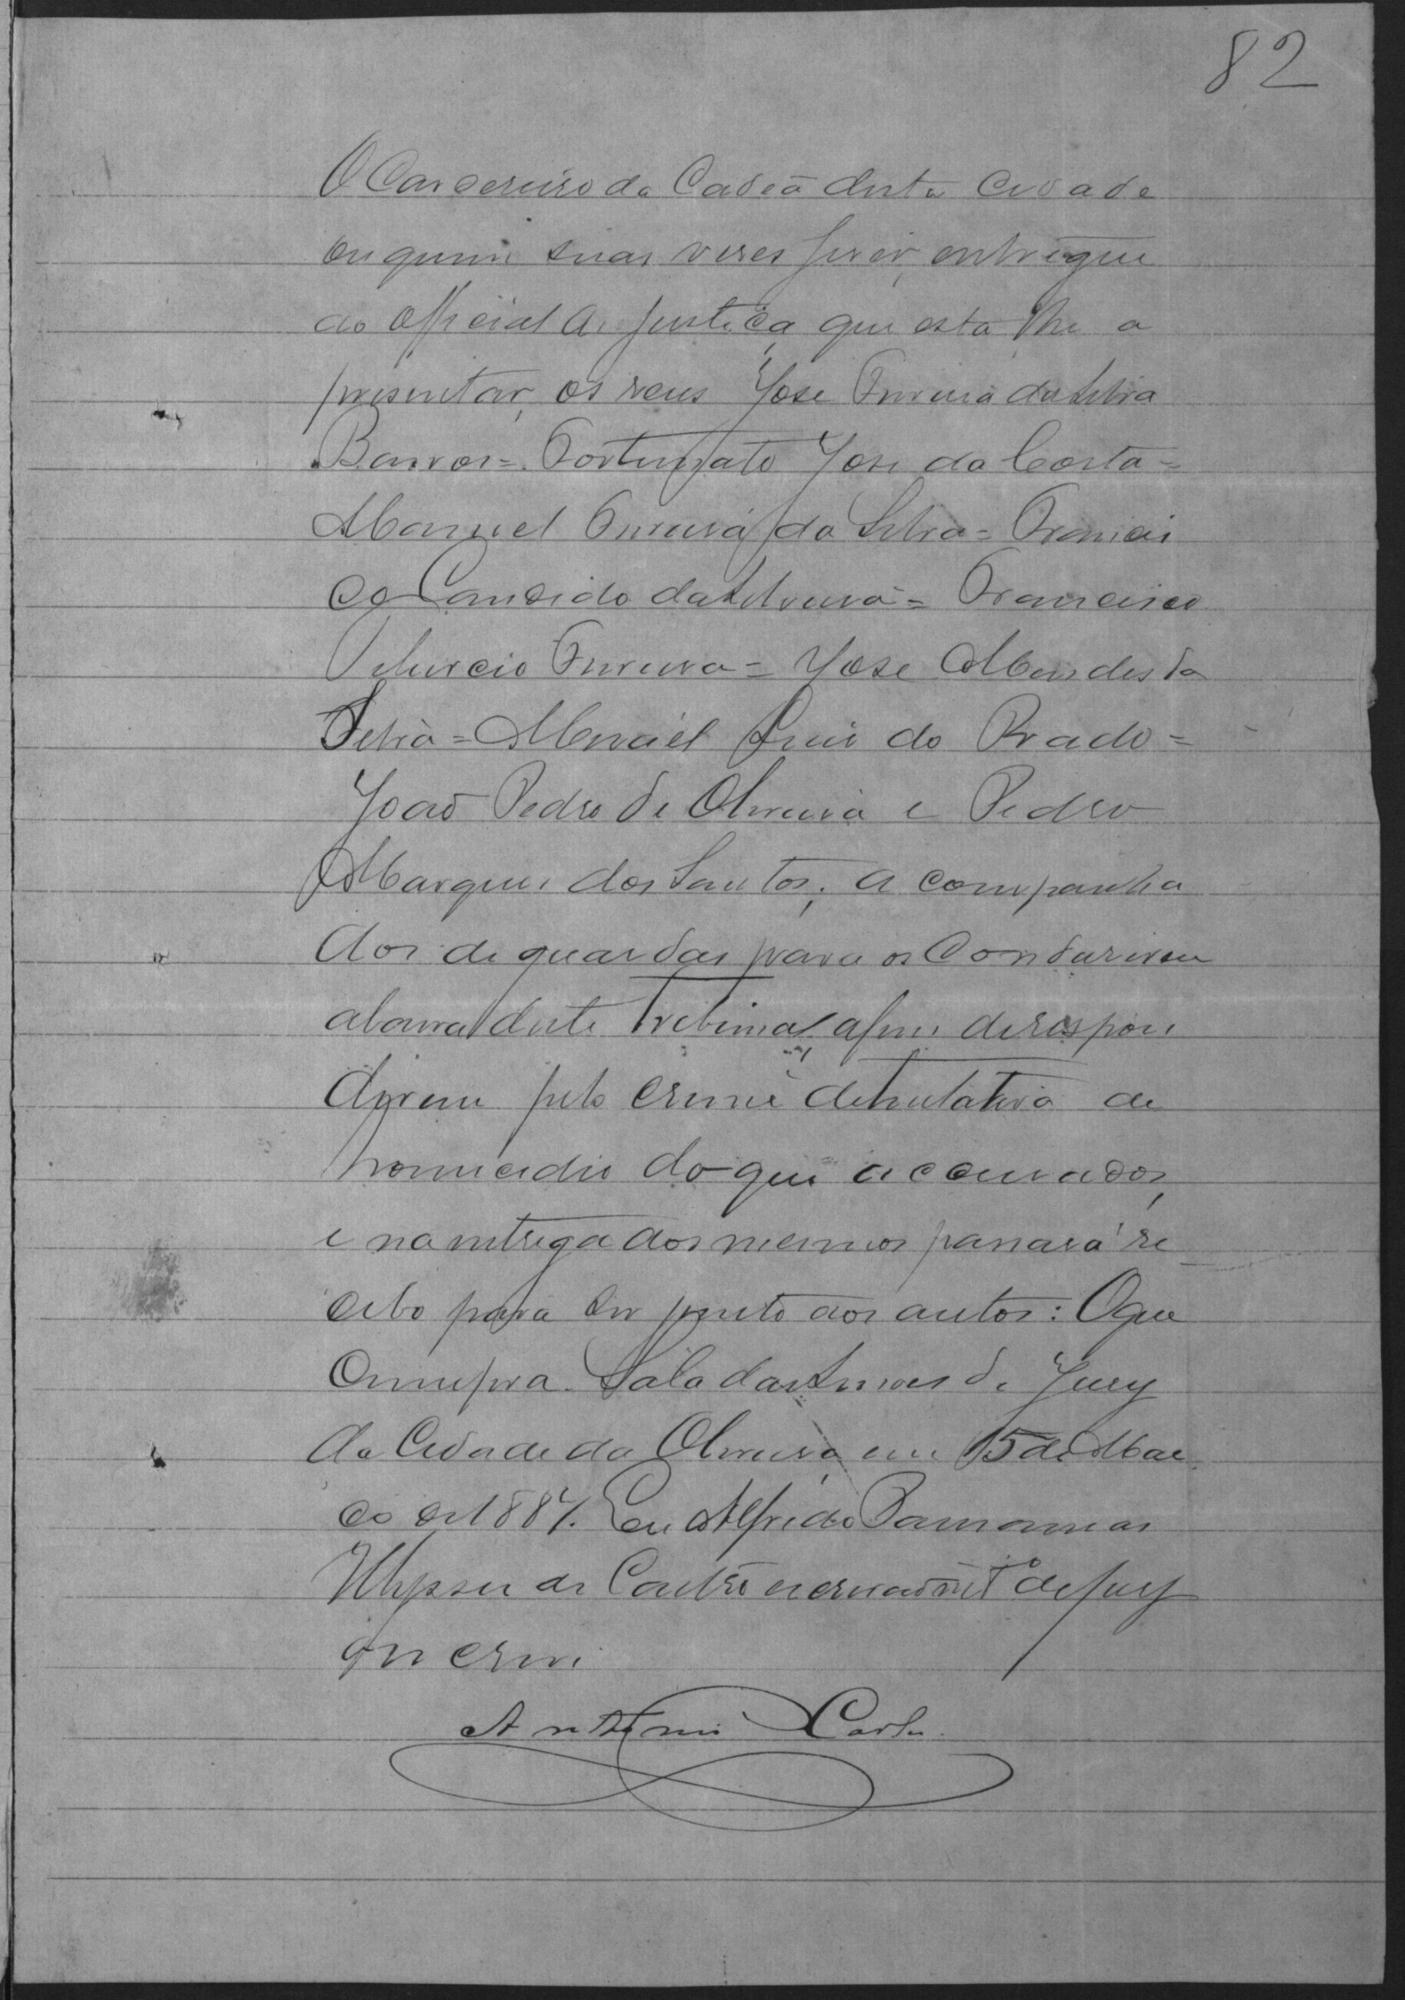 82
O Carcereiro da Cadeã desta Cidade
ou quem suas veses fizer, entregue
ao official de justiça, que esta lhe a
presentar, os reus José Ferreira da Silva
Barros = Fortunato José da Costa =
Manuel Ferreira da Silva = Francis
co Candido da Silveira = Francisco
Ferreira = José Mendes da
Silva = Luis do Prado =
João Pedro de Oliveira e Pedro
Marques dos Santos, acompanha
dos de guardas para os condusirem
abarra deste Tribunal, afim de respon
direm pelo crime de tentativa de
homicidio do que accusados,
e na entrega dos mesmos passará re
cibo para ser junto aos autos: O que
Cumpra. Sala das Sessoes do Jury
da Cidade da Oliveira em 15 de Mar
ço de 1887. Eu Alfredo
Ulysses de Castro escrivão int.º do jury
que escrevi
Antonio Carlos